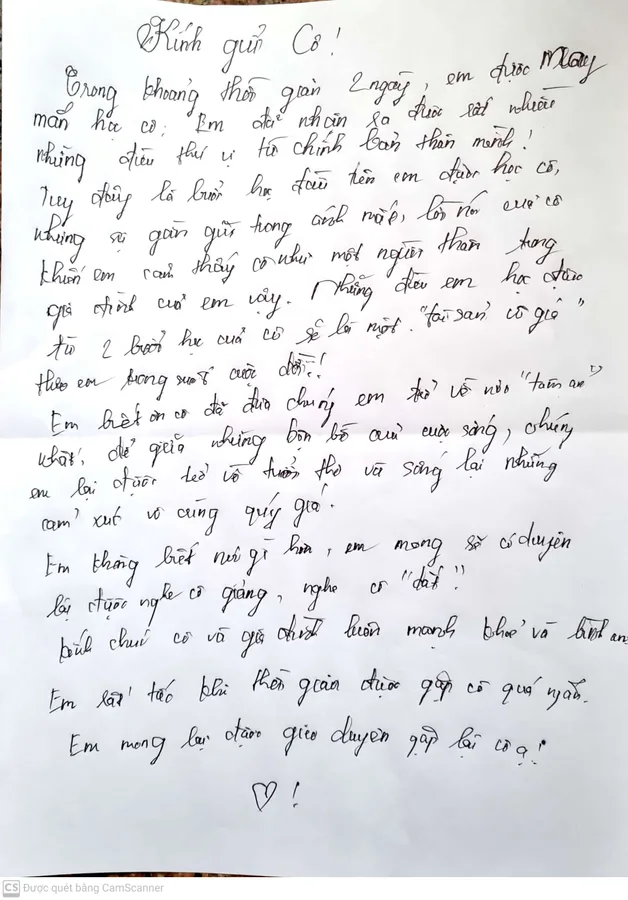 Kính gửi Cô!
Trong khoảng thời gian 2 ngày, em được May
mắn học cô. Em đã nhận ra được rất nhiều
những điều thú vị từ chính bản thân mình!
Tuy đây là buổi học đầu tiên em được học cô,
nhưng sự gần gũi trong ánh mắt, lời nói của cô
khiến em cảm thấy cô như một người thân trong
gia đình của em vậy. Những điều em học được
từ 2 buổi học của cô sẽ là một "tài sản vô giá"
theo em trong suốt cuộc đời!!
Em biết ơn cô đã đưa chúng em trở về nơi "tâm an"
nhất, để giữa những bộn bề của cuộc sống, chúng
em lại được trở về tuổi thơ và sống lại những
cảm xúc vô cùng quý giá.
Em không biết nói gì hơn, em mong sẽ có duyên
lại được nghe cô giảng, nghe cô "dắt".
Kính chúc cô và gia đình luôn mạnh khoẻ và bình an.
Em rất tiếc khi thời gian được gặp cô quá ngắn.
Em mong lại được gieo duyên gặp lại cô ạ!
♡!
CS Được quét bằng CamScanner